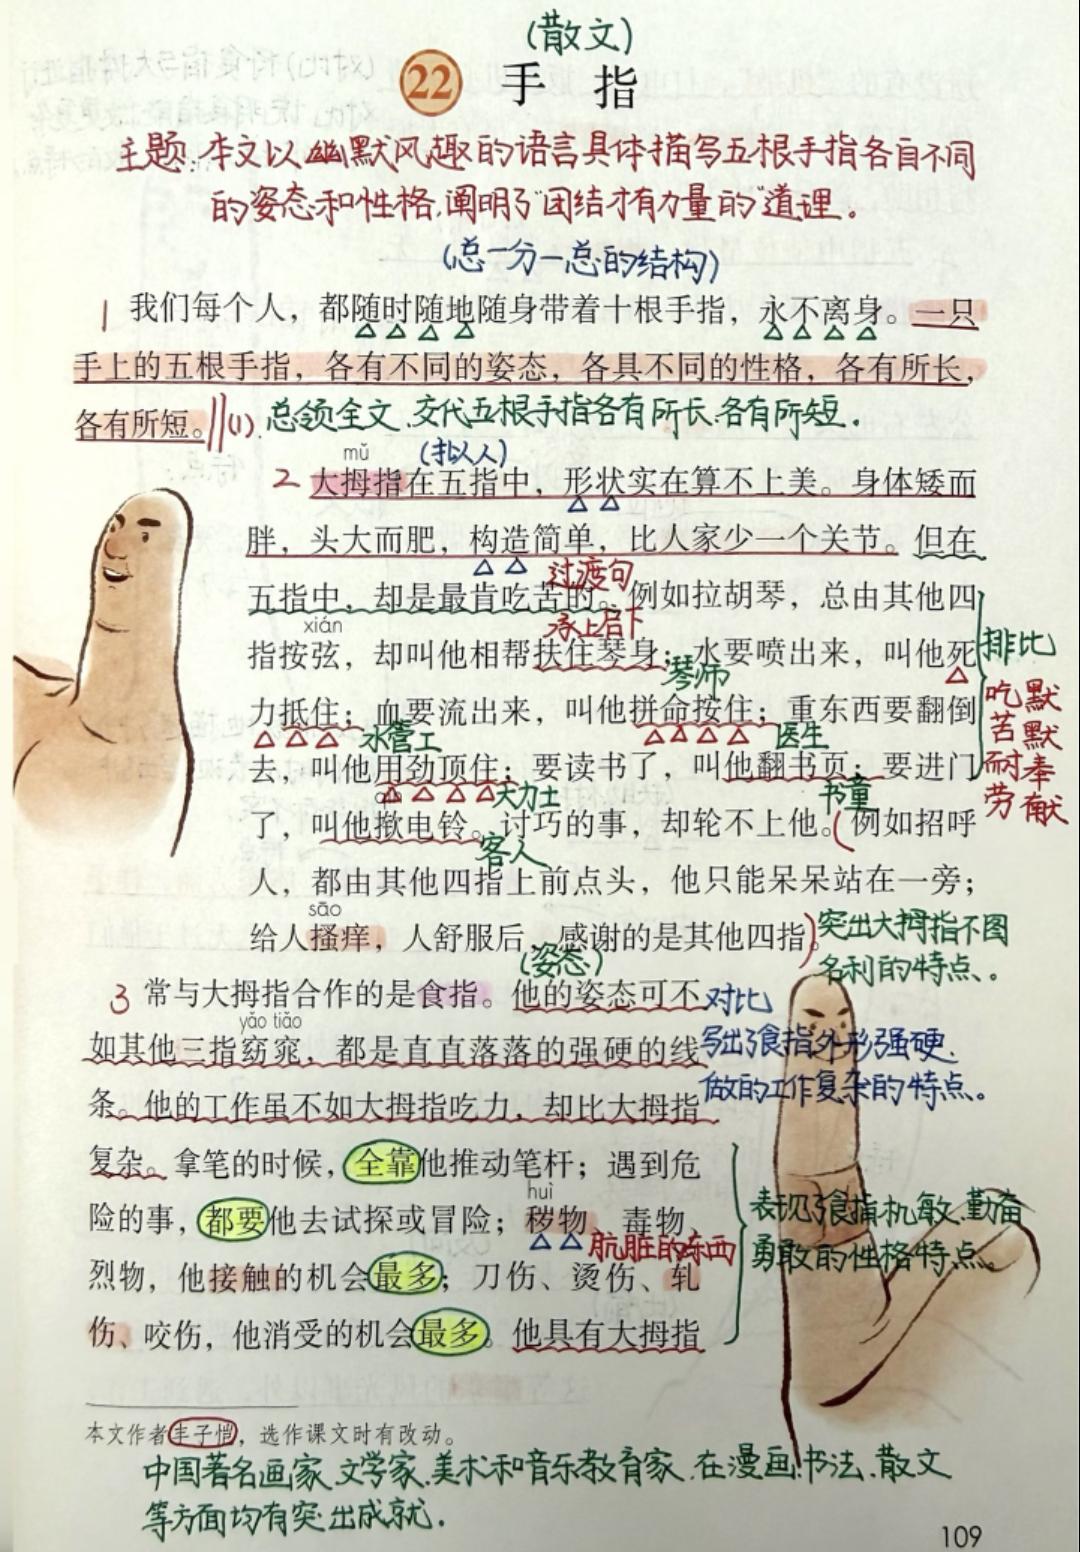 (散文)
22 手指
主题:本文以幽默风趣的语言具体描写五根手指各自不同
的姿态和性格,阐明了"团结才有力量的"道理。
(总一分一总的结构)
1 我们每个人，都随时随地随身带着十根手指，永不离身。一只
手上的五根手指，各有不同的姿态，各具不同的性格，各有所长，
各有所短。||(1).总领全文、交代五根手指各有所长、各有所短.
mǔ (拟人)
2 大拇指在五指中，形状实在算不上美。身体矮而
胖，头大而肥，构造简单，比人家少一个关节。但在
过渡句
五指中，却是最肯吃苦的。例如拉胡琴，总由其他四
xián 承上启下 排比
指按弦，却叫他相帮扶住琴身；水要喷出来，叫他死
琴师
力抵住；血要流出来，叫他拼命按住；重东西要翻倒
水管工 医生
吃苦耐劳
默默奉献
去，叫他用劲顶住；要读书了，叫他翻书页；要进门
大力士 书童
了，叫他揿电铃。讨巧的事，却轮不上他。(例如招呼
客人
人，都由其他四指上前点头，他只能呆呆站在一旁；
sāo
给人搔痒，人舒服后，感谢的是其他四指。)突出大拇指不图
名利的特点、。
(姿态)
3 常与大拇指合作的是食指。他的姿态可不 对比
yǎo tiǎo
如其他三指窈窕，都是直直落落的强硬的线 写出了食指外形强硬、
条。他的工作虽不如大拇指吃力，却比大拇指 做的工作复杂的特点。
复杂。拿笔的时候，全靠他推动笔杆；遇到危
huì
险的事，都要他去试探或冒险；秽物、毒物、 表现了食指机敏、勤奋
肮脏的东西 勇敢的性格特点。
烈物，他接触的机会最多；刀伤、烫伤、轧
伤、咬伤，他消受的机会最多。他具有大拇指
本文作者丰子恺，选作课文时有改动。
中国著名画家、文学家、美术和音乐教育家、在漫画、书法、散文
等方面均有突出成就.
109